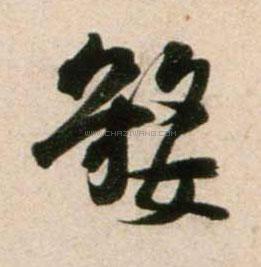 婺
WWW.CHAZIWANG.COM